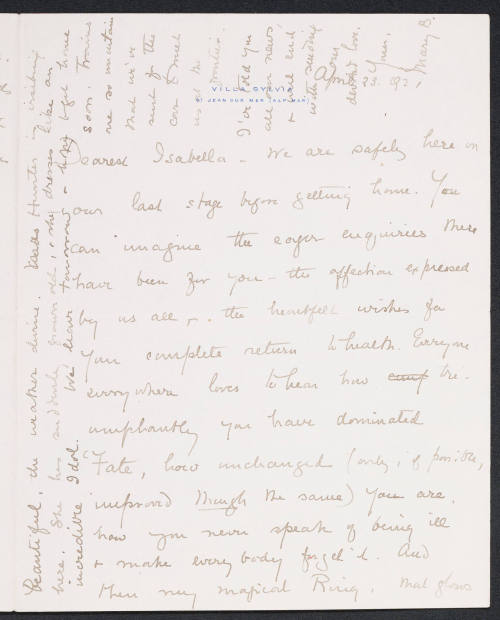 VILLA SYLVIA
ST JEAN SUR MER (ALP. MAR.)
Dearest Isabella - We are safely here on
our last stage before getting home. You
can imagine the eager enquiries there
have been for you - the affection expressed
by us all +. the heartfelt wishes for
your complete return to health. Everyone
everywhere loves to hear how tri-
umphantly you have dominated
Fate, how unchanged (only, if possible,
improved though the same) you are,
how you never speak of being ill
+ make everybody forget it. And
then my magical Ring, that glows
beautiful, the weather divine. Hunter is visiting
here. She has suddenly grown old, + she dresses like an
incredible Idol. We leave tomorrow + hope to get home
soon. Trevino
me so
that we've
sent for the
car to meet
us at the
frontier.
I've told you
all our news
+ will end
with sending
you
devoted love.
Yrs,
Mary B.